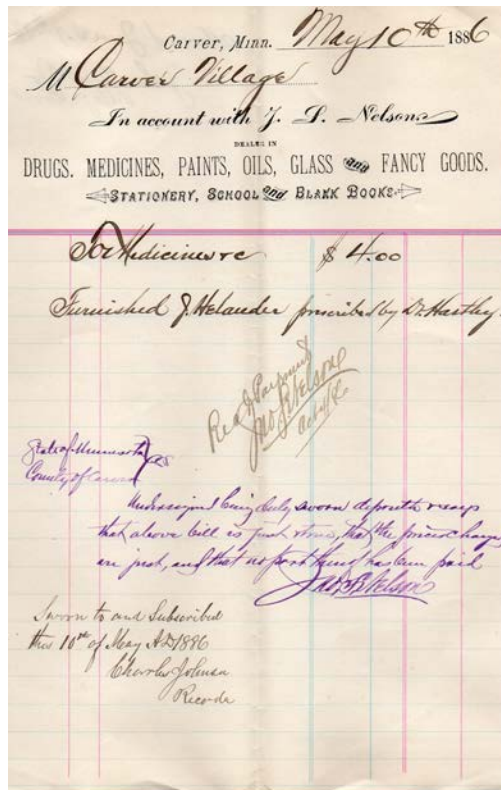 Carver, Minn. May 10th 1886
M Carver Village
In account with J. S. Nelson
DEALER IN
DRUGS. MEDICINES, PAINTS, OILS, GLASS and FANCY GOODS.
STATIONERY, SCHOOL and BLANK BOOKS
To Medicines &c $4.00
Furnished J. Helander prescribed by Dr. Hartley
Recd Payment
Nelson
State of Minnesota } ss
County of Carver
Undersigned being duly sworn deposeth & says
that above bill is just & true, that the prices charged
are just, and that no part thereof has been paid
Nelson
Sworn to and Subscribed
this 10th of May AD 1886
Charles Johnson
Recorder